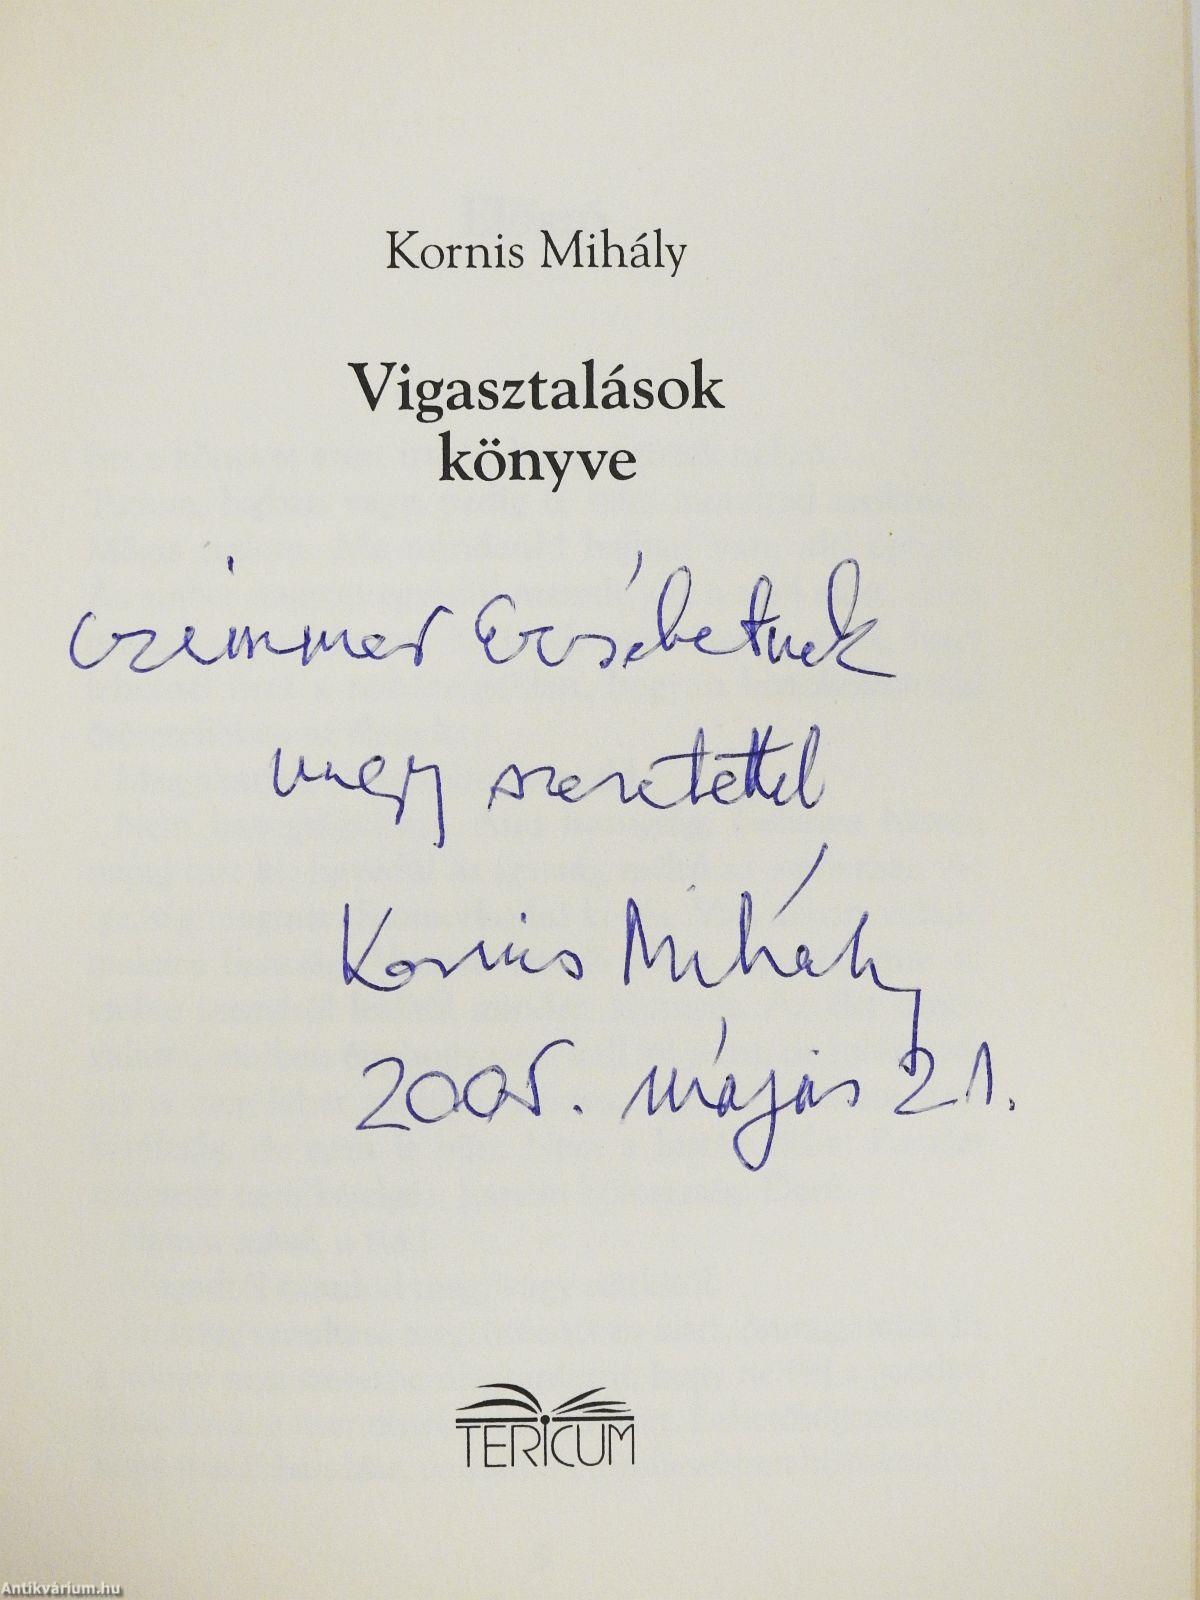 Kornis Mihály
Vigasztalások
könyve
Czimmer Erzsébetnek
nagy szeretettel
Kornis Mihály
2005. május 21.
TERICUM
Antikvárium.hu